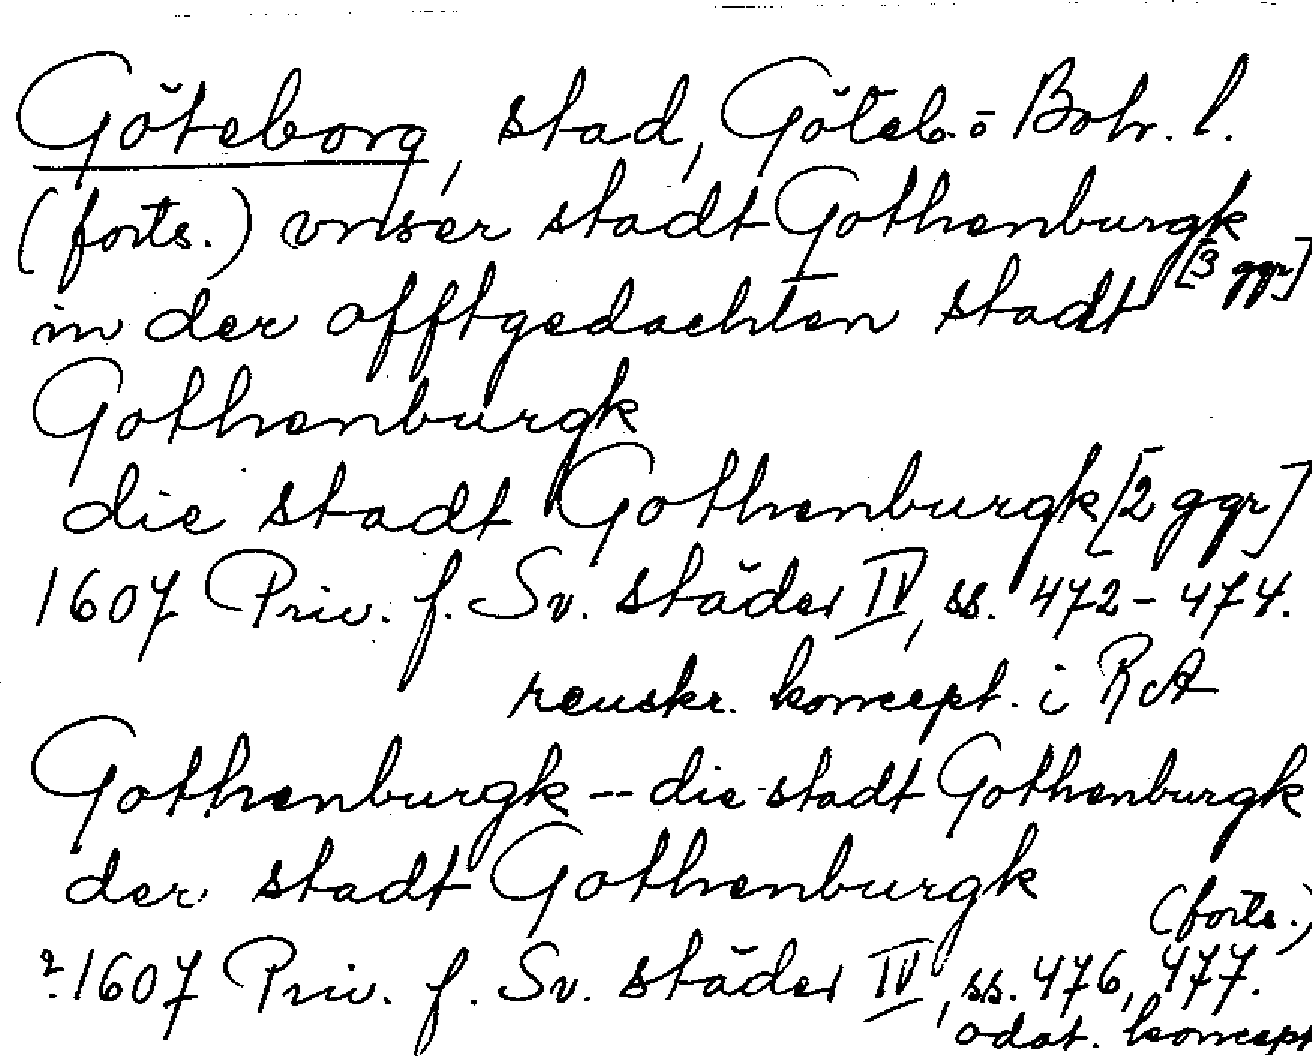 Göteborg, stad, Göteb. o Boh. l.
(forts.) vnser stadt Gothenburgk
[3 ggr]
in der offtgedachten stadt
Gothenburgk
die stadt Gothenburgk [2 ggr]
1607 Priv. f. Sv. städer IV, ss. 472-474.
renskr. koncept. i RA
Gothenburgk -- die stadt Gothenburgk
der stadt Gothenburgk
(forts.)
?1607 Priv. f. Sv. städer IV, ss. 476, 477.
odat. koncept